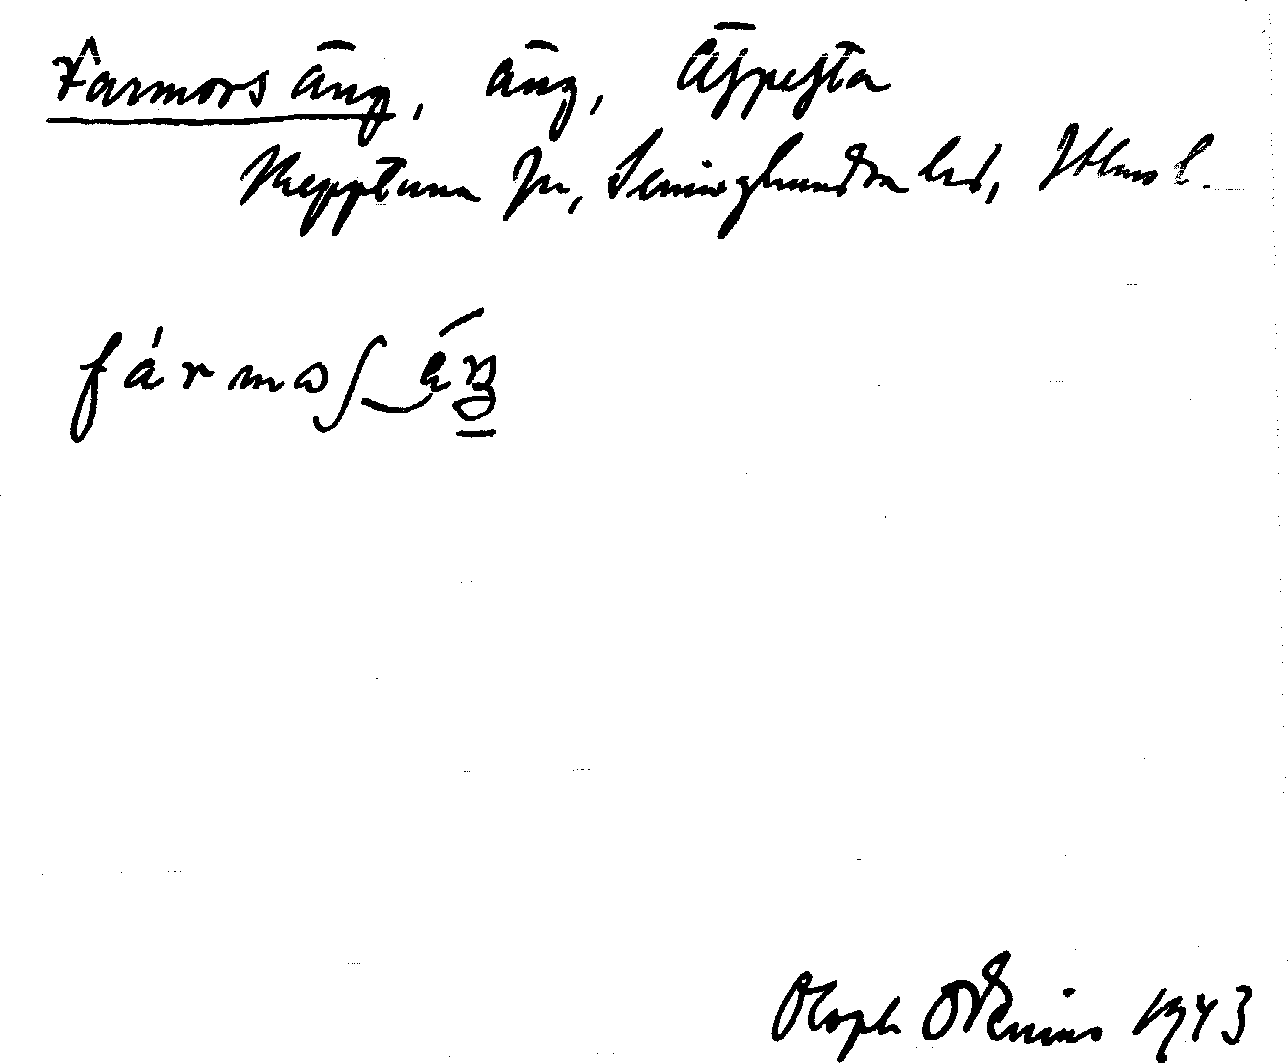 Farmors äng, äng, Äspesta
Skepptuna sn, Seminghundra hd, Sthms l.
fármos äŋ
Oloph Odenius 1943